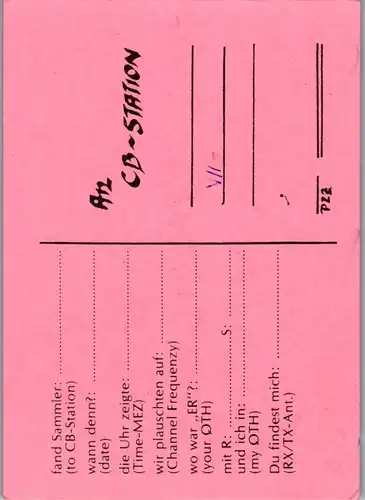 An
CB-STATION
VII
PLZ
fand Sammler:
(to CB-Station)
wann denn?:
(date)
die Uhr zeigte:
(Time-MEZ)
wir plauschten auf:
(Channel Frequenzy)
wo war „ER"?:
(your ØTH)
mit R: S:
und ich in:
(my ØTH)
Du findest mich:
(RX/TX-Ant.)